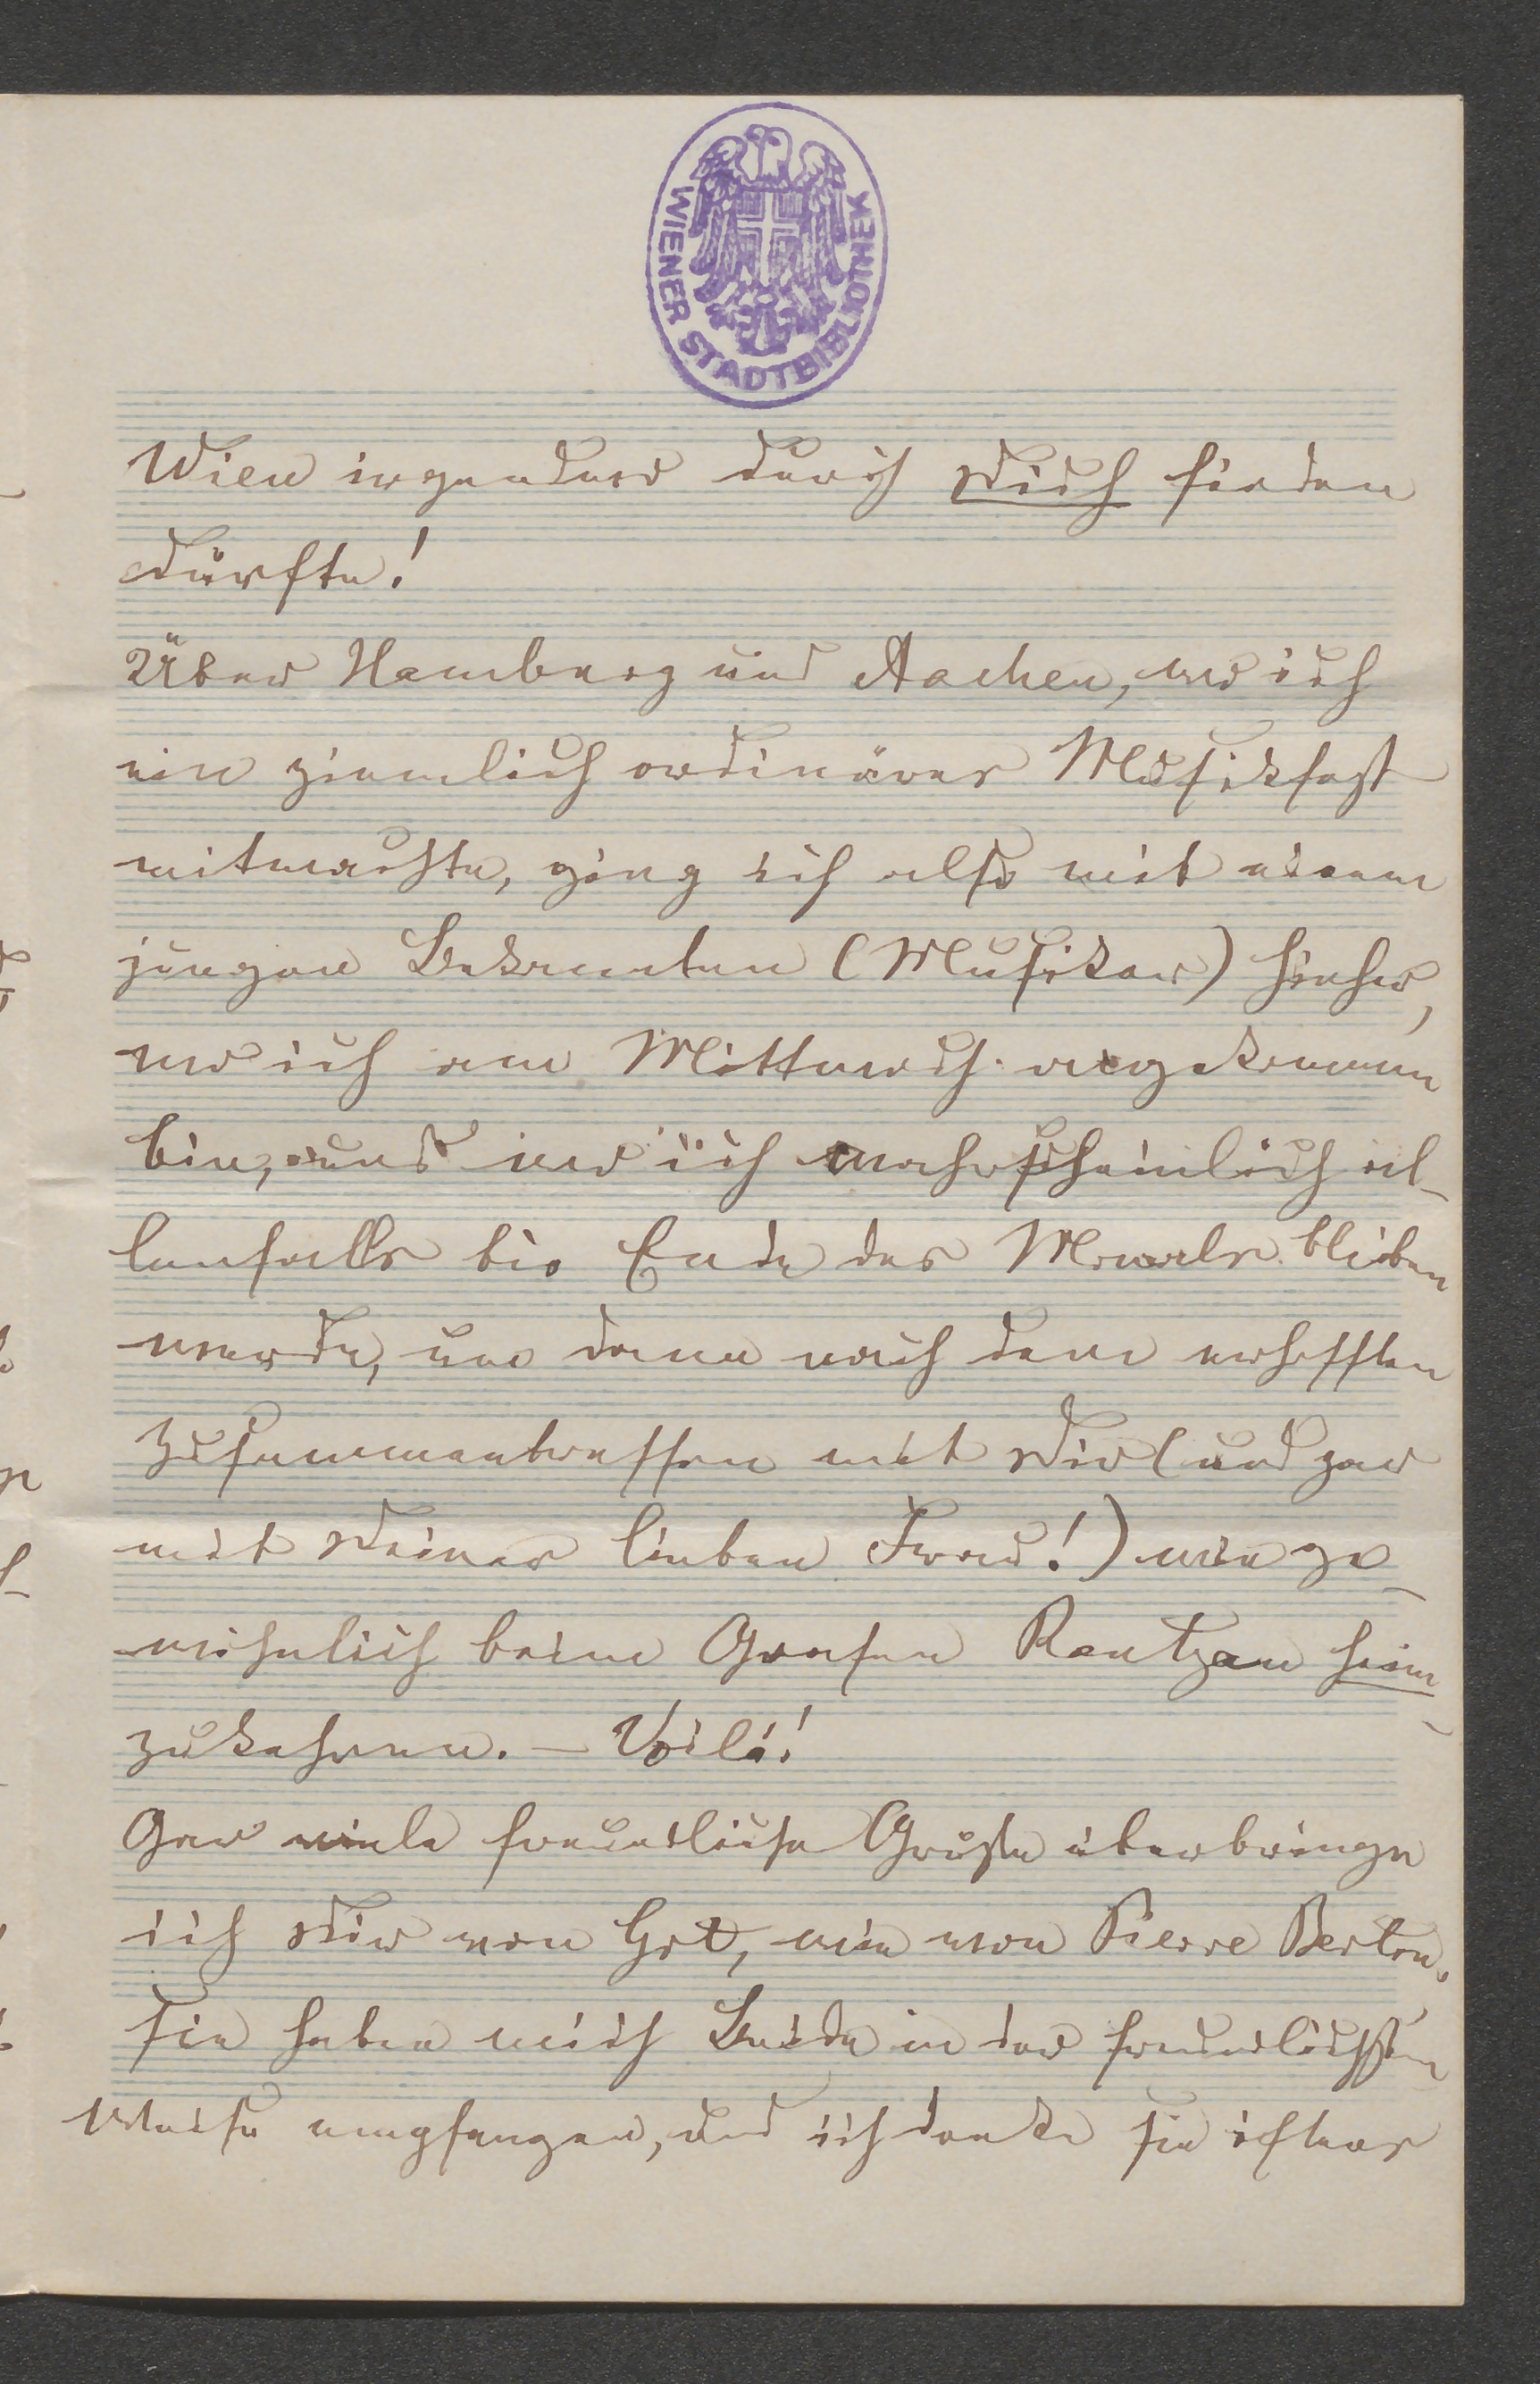 WIENER STADTBIBLIOTHEK
Wien irgendwo durch Dich finden
dürfte!
Über Hamburg und Aachen, wo ich
ein ziemlich ordinäres Musikfest
mitmachte, ging ich also mit einem
jungen Bekannten (Musiker) hieher,
wo ich am Mittwoch angekommen
bin, und wo ich wahrscheinlich al-
lenfalls bis Ende des Monats bleiben
werde, um dann nach dem erhofften
Zusammentreffen mit Dir (und gar
mit Deiner lieben Frau!) wie ge-
wöhnlich beim Grafen Rantzau heim-
zukehren. – Voilà!
Gar viele freundliche Grüße überbringe
ich Dir von Got, wie von Pierre Berton.
Sie haben mich Beide in der freundlichsten
Weise empfangen, und ich danke sie öfters